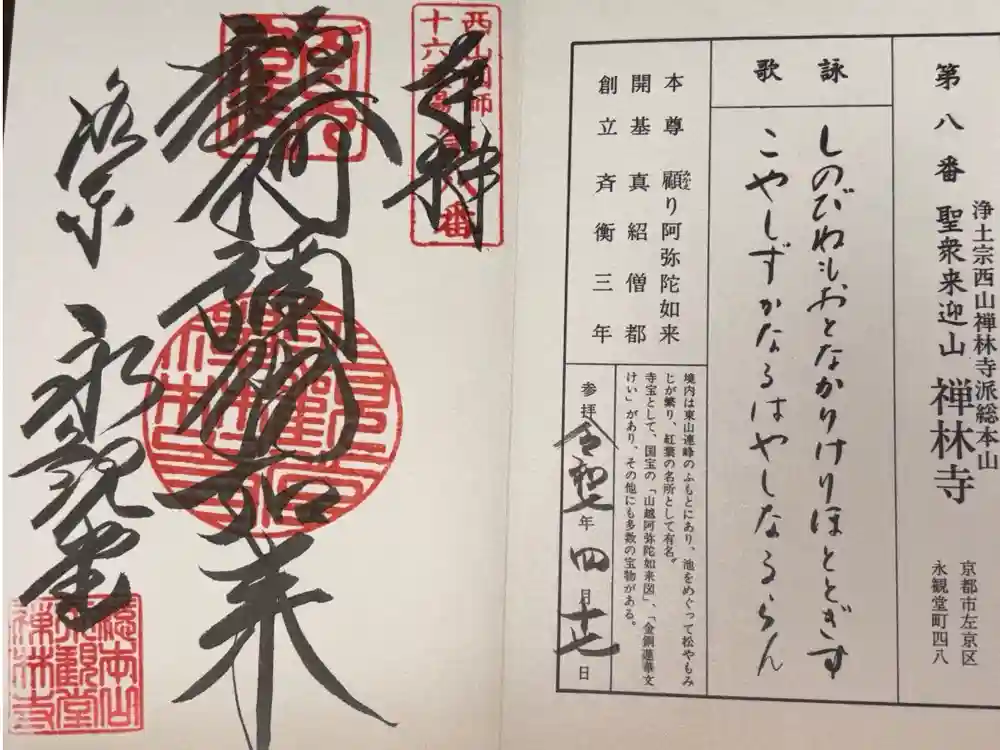 浄土宗西山禅林寺派総本山
第八番 聖衆来迎山 禅林寺
京都市左京区
永観堂町四八
詠歌
しのびねもおとなかりけりほととぎす
こやしずかなるはやしなるらん
本尊 顧り阿弥陀如来
開基 真紹僧都
創立 斉衡三年
境内は東山連峰のふもとにあり、池をめぐって松やもみ
じが繁り、紅葉の名所として有名。
寺宝として、国宝の「山越阿弥陀如来図」、「金銅蓮華文
けい」があり、その他にも多数の宝物がある。
参拝 令和七年四月十七日
西山国師
十六霊場第八番
奉拝
彌陀如来
洛東 永観堂
総本山
永観堂
禅林寺